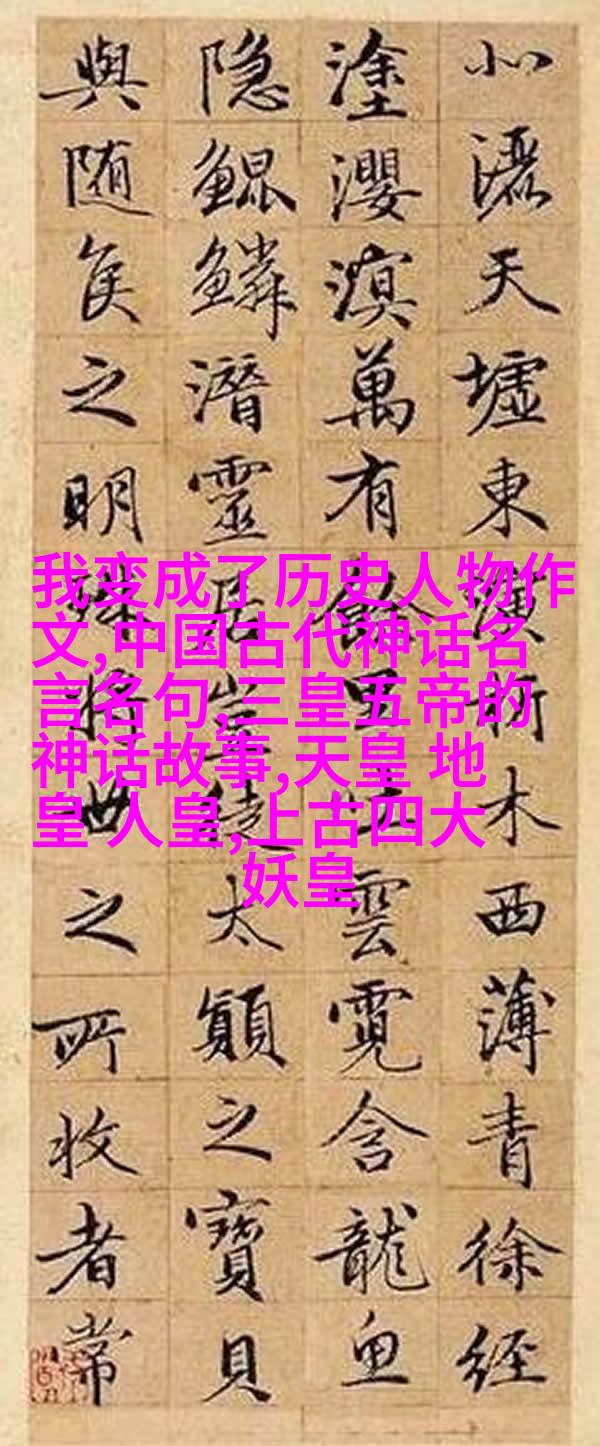 北灑天墟東演析木西薄青徐經
塗瀴溟萬有餘里吐雲霓含龍魚
隐鯤鱗潛靈居豈徒太顛之寶貝
與随侯之明珠將世之所收者常
我变成了历史人物作
文,中国古代神话名
言名句,三皇五帝的
神话故事,天皇 地
皇 人皇,上古四大
妖皇